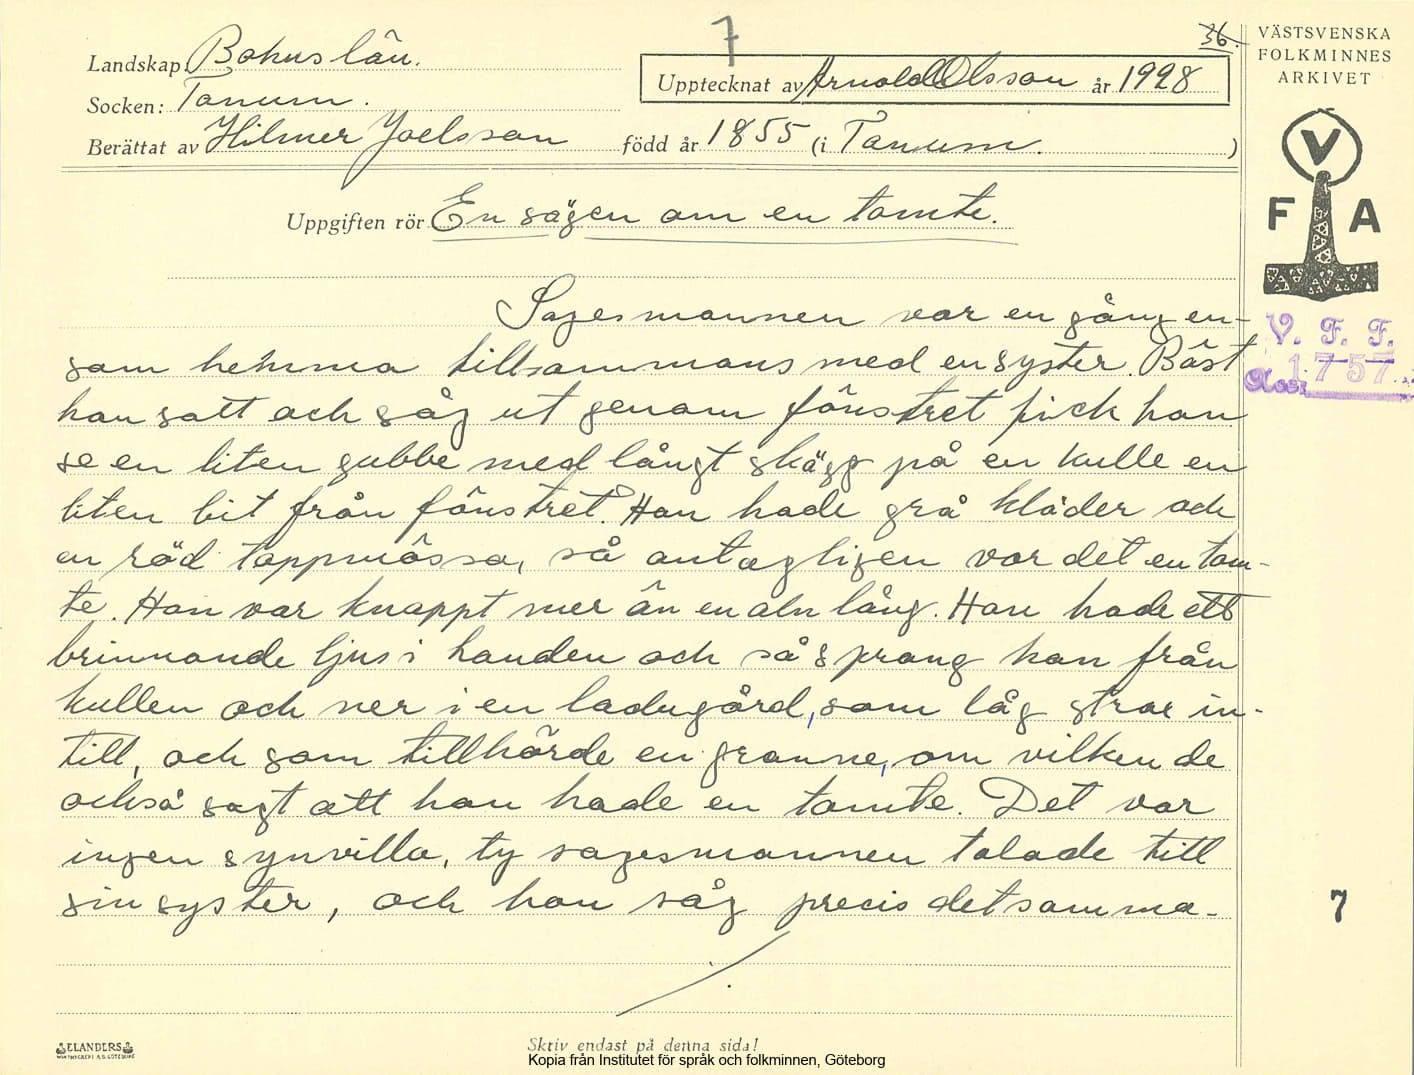 7
36.
Landskap: Bohuslän.
Upptecknat av Arnold Olsson år 1928
Socken: Tanum.
Berättat av Hilmer Joelsson född år 1855 (i Tanum. )
Uppgiften rör En sägen om en tomte.
Sagesmannen var en gång en-
sam hemma tillsammans med en syster. Bäst
han satt och såg ut genom fönstret fick han
se en liten gubbe med långt skägg på en kulle en
liten bit från fönstret. Han hade grå kläder och
en röd toppmössa, så antagligen var det en tom-
te. Han var knappt mer än en aln lång. Han hade ett
brinnande ljus i handen och så sprang han från
kullen och ner i en ladugård, som låg strax in-
till, och som tillhörde en granne, om vilken de
också sagt att han hade en tomte. Det var
ingen synvilla, ty sagesmannen talade till
sin syster, och hon såg precis detsamma.
VÄSTSVENSKA
FOLKMINNES
ARKIVET
V
F A
V. F. F.
Acc. 1757
7
ELANDERS
Skriv endast på denna sida!
Kopia från Institutet för språk och folkminnen, Göteborg